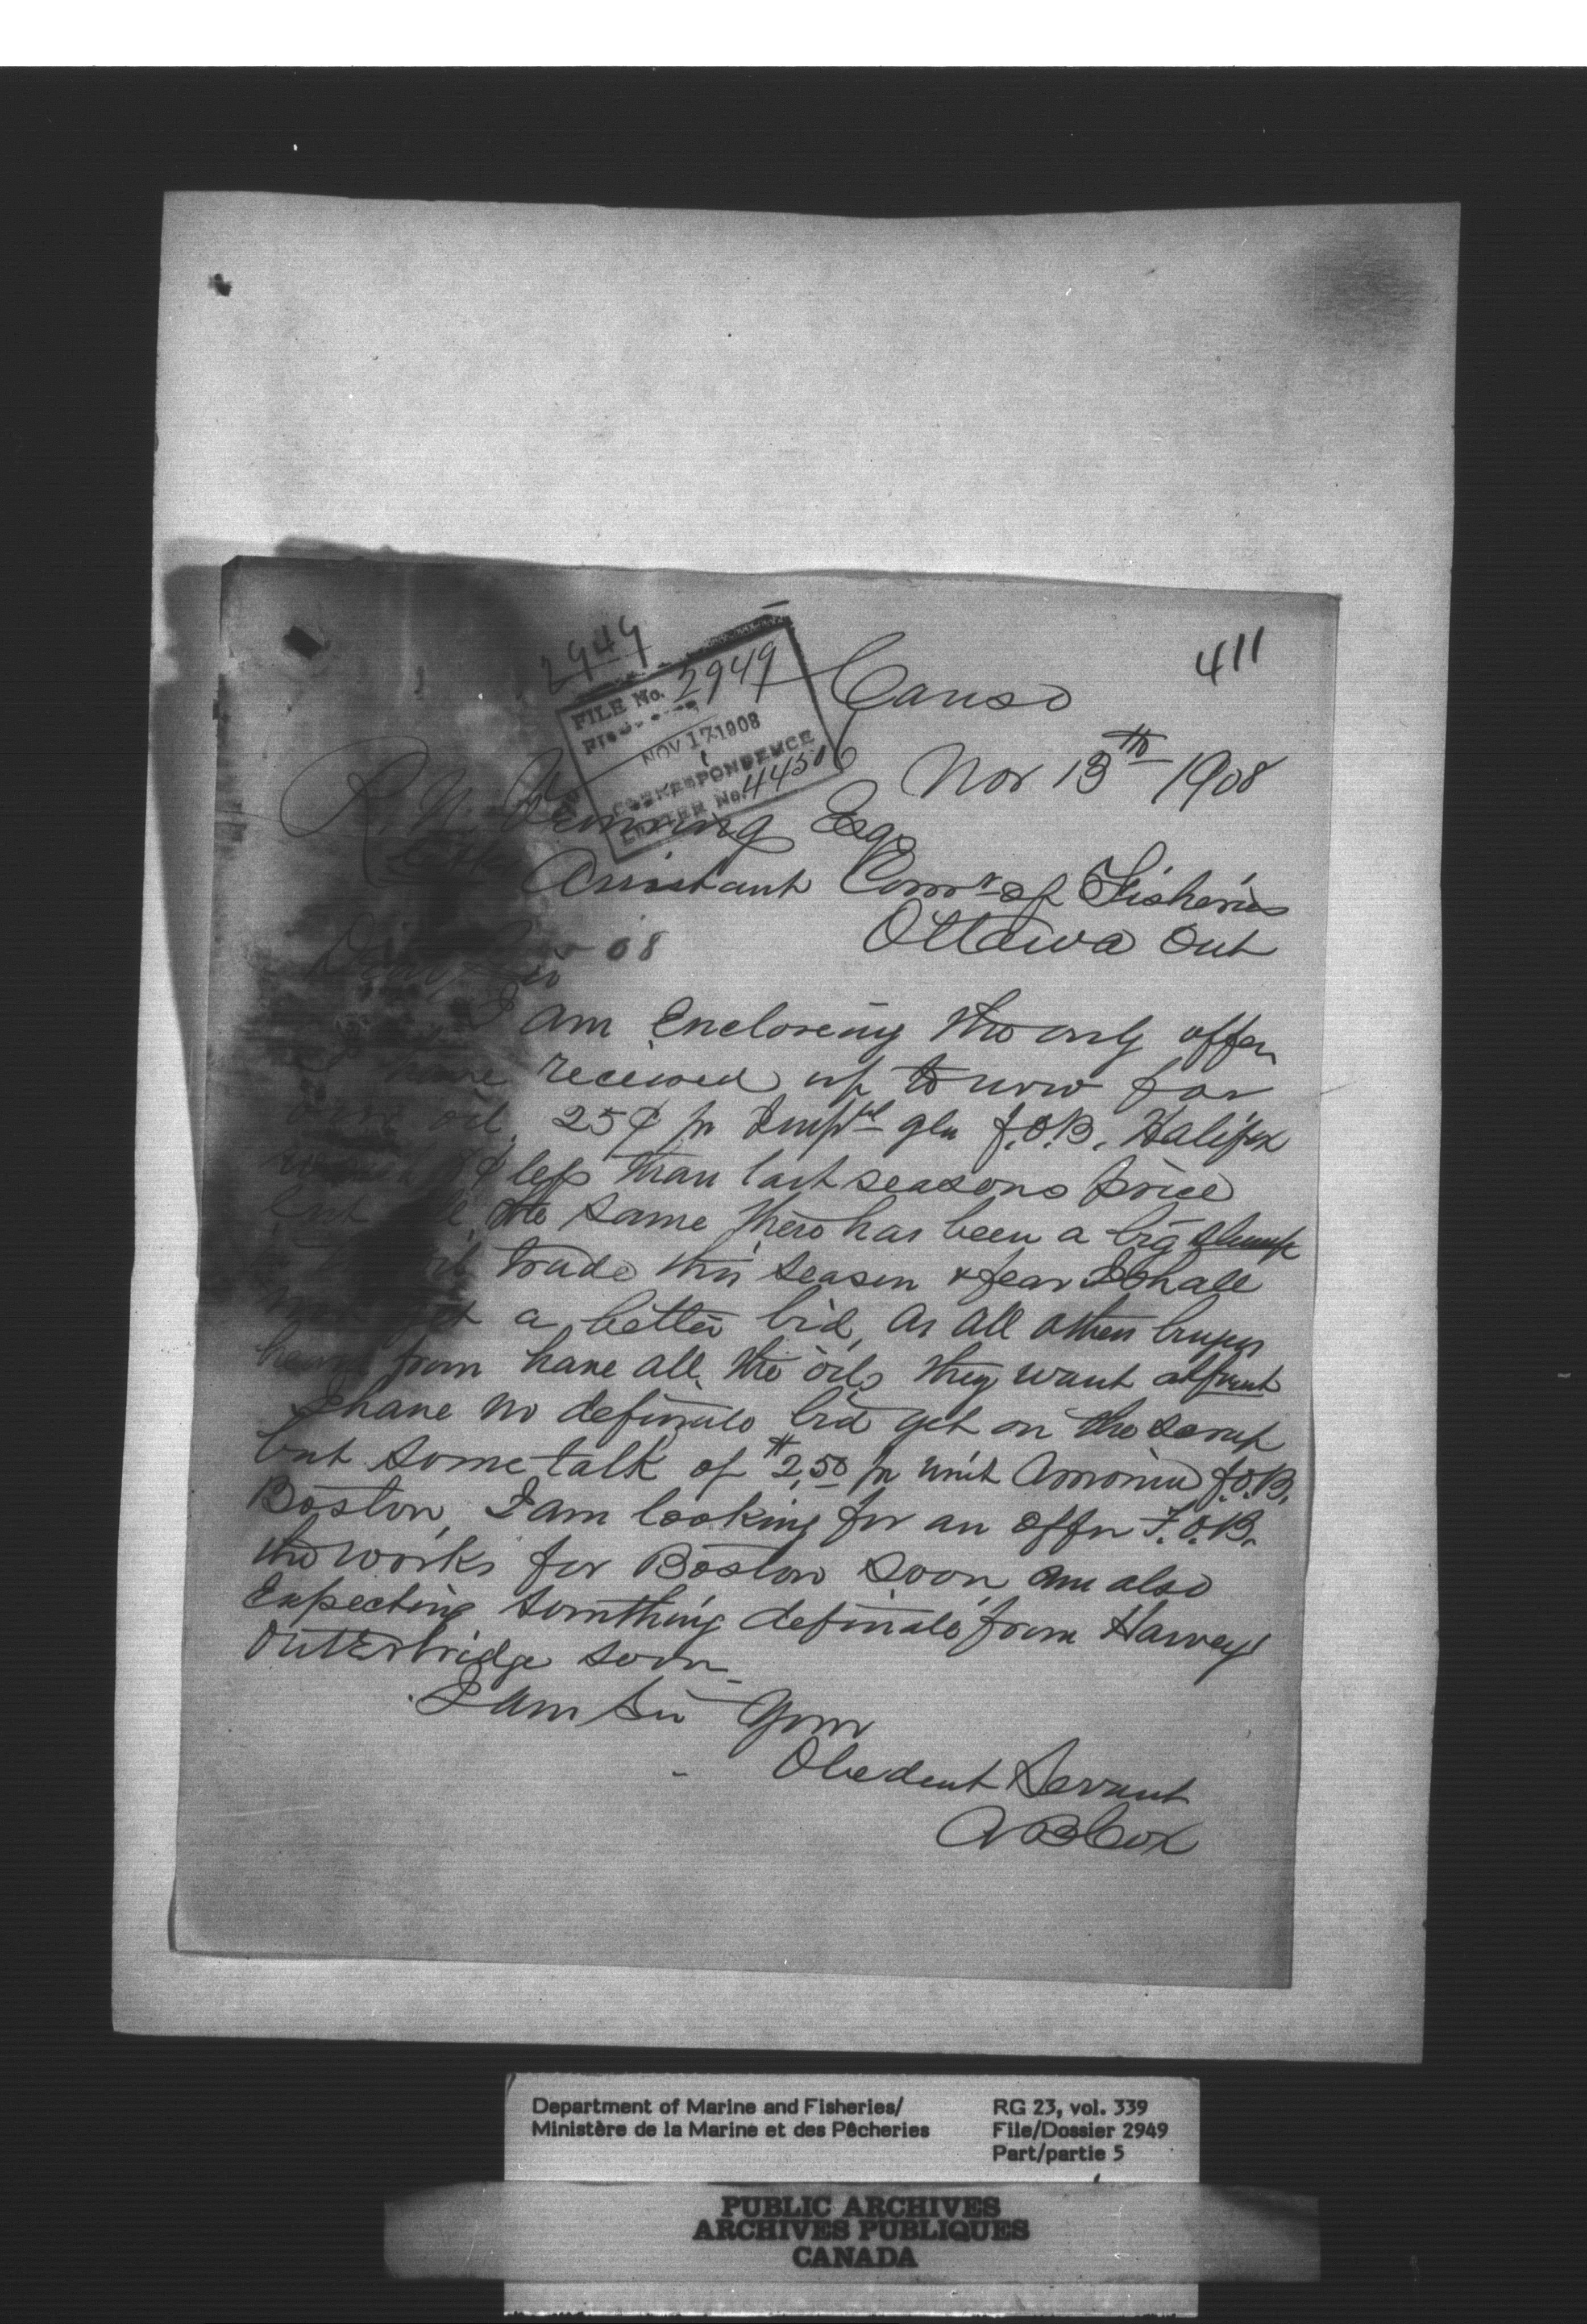 411
2949
FILE No. 2949
NOV 17 1908
CORRESPONDENCE
LETTER No. 44506
Canso
Nov 13th 1908
R. N. Venning Esq
Assistant Comr of Fisheries
Ottawa Ont
Dear Sir
08
I am Encloseing the only offer
I have received up to now for
our oil. 25¢ pr Impl gln f.O.B. Halifax
¢ less than last seasons price
but all the same there has been a big slump
oil trade this season & fear I shall
not get a better bid, as all other buyers
heard from have all the oils they want at present
I have no definate bid yet on the scrap
but some talk of $2.50 pr unit Amonia f.O.B.
Boston, I am looking for an offer F.O.B.
the works for Boston soon, am also
Expecting somthing definate from Harvey
Outerbridge soon
I am Sir Your
Obedent Servant
A B Cox
Department of Marine and Fisheries/
Ministère de la Marine et des Pêcheries
RG 23, vol. 339
File/Dossier 2949
Part/partie 5
PUBLIC ARCHIVES
ARCHIVES PUBLIQUES
CANADA